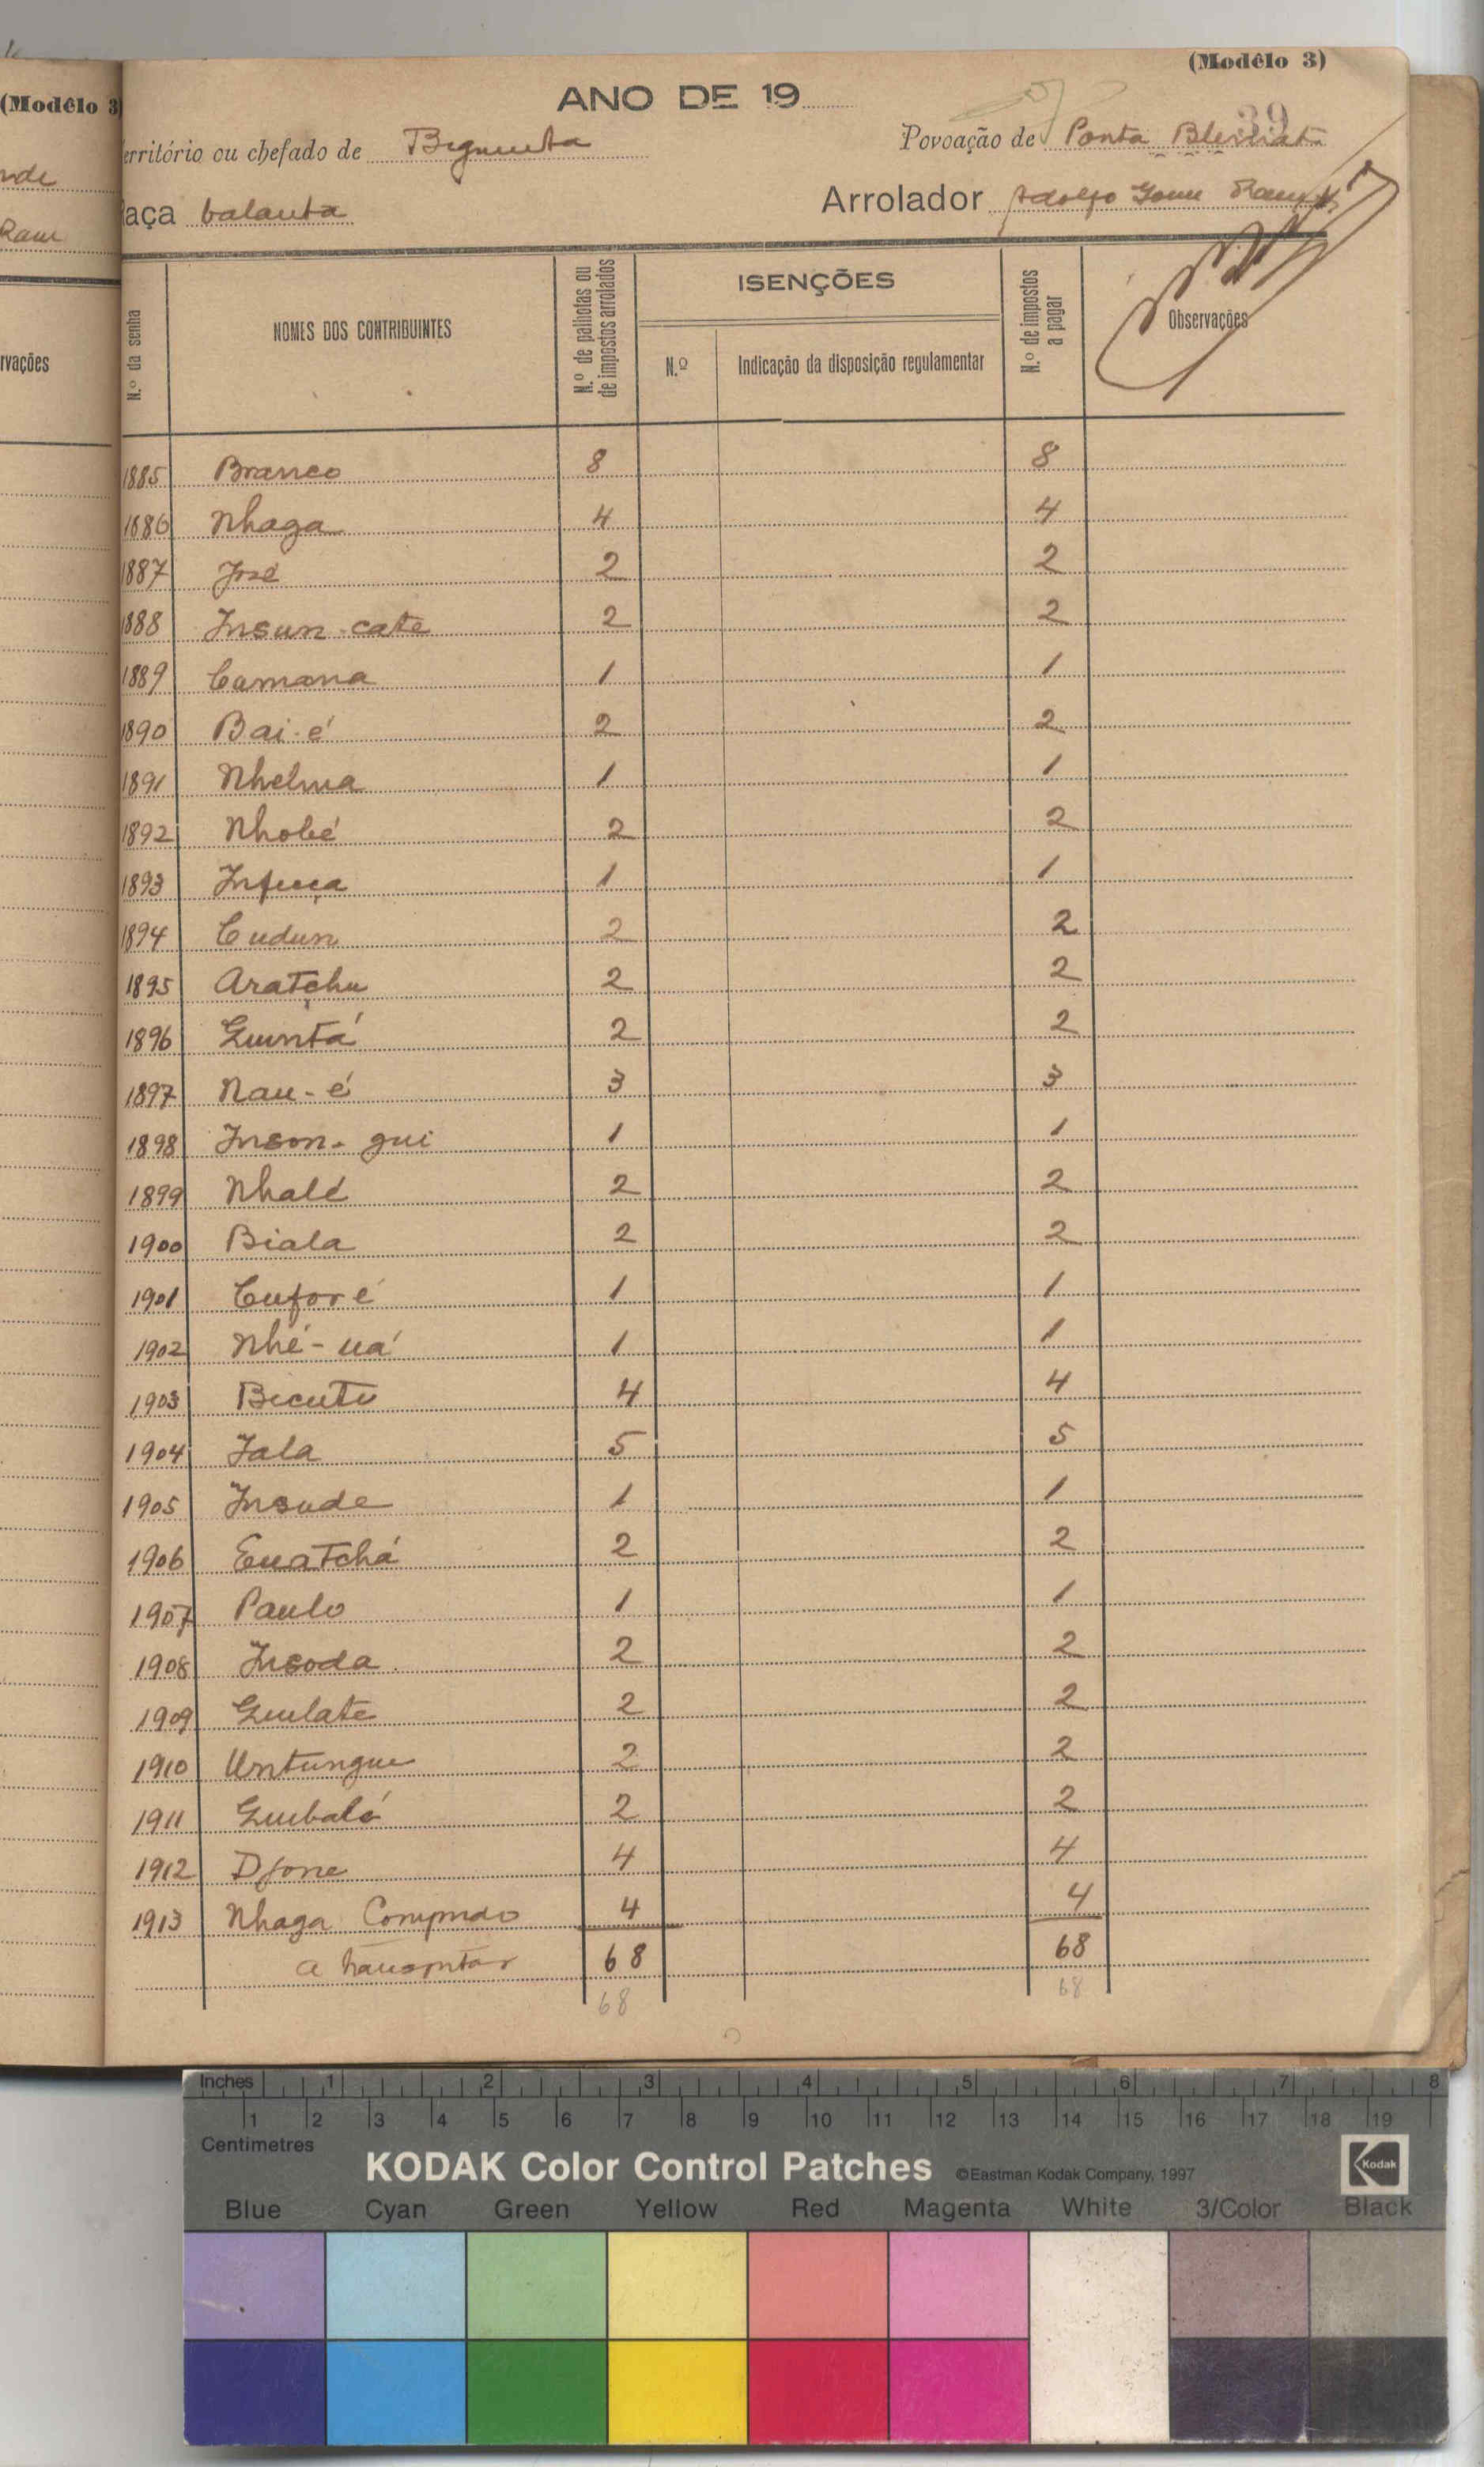 (Modêlo 3)
(Modêlo 3
ANO DE 19
39
erritório ou chefado de
Povoação de Ponta
aça balanta
Arrolador Adolfo Gomes
rvações
N.º da senha
NOMES DOS CONTRIBUINTES
N.º de palhotas ou de impostos arrolados
ISENÇÕES
N.º
Indicação da disposição regulamentar
N.º de impostos a pagar
Observações
1885 Branco 8 8
1886 Nhaga 4 4
1887 José 2 2
1888 Insun-cate 2 2
1889 Camana 1 1
1890 Bai-é 2 2
1891 Nhelma 1 1
1892 Nhobé 2 2
1893 Infuça 1 1
1894 Cudun 2 2
1895 Aratchu 2 2
1896 Quintá 2 2
1897 Nau-é 3 3
1898 Inson-gui 1 1
1899 Nhalé 2 2
1900 Biala 2 2
1901 Cuforé 1 1
1902 Nhé-uá 1 1
1903 Bicuti 4 4
1904 Jala 5 5
1905 Insude 1 1
1906 Euatchá 2 2
1907 Paulo 1 1
1908 Insoda 2 2
1909 Quilate 2 2
1910 Untungue 2 2
1911 Quibaló 2 2
1912 Djone 4 4
1913 Nhaga Comprido 4 4
a transportar 68 68
68 68
Inches 1 2 3 4 5 6 7 8
1 2 3 4 5 6 7 8 9 10 11 12 13 14 15 16 17 18 19
Centimetres
KODAK Color Control Patches ©Eastman Kodak Company, 1997 Kodak
Blue Cyan Green Yellow Red Magenta White 3/Color Black